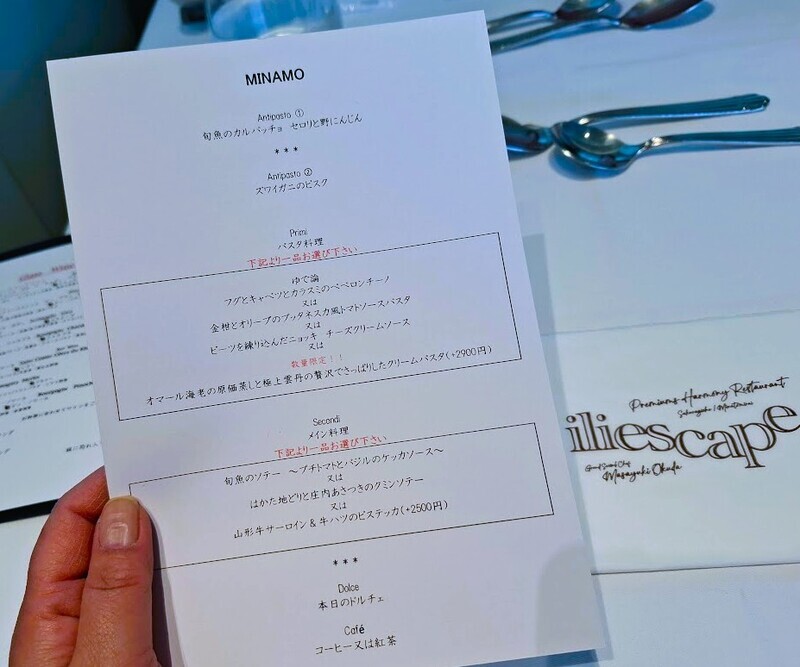 MINAMO
Antipasto ①
旬魚のカルパッチョ セロリと野にんじん
***
Antipasto ②
ズワイガニのビスク
Primi
パスタ料理
下記より一品お選び下さい
ゆで論
フグとキャベツとカラスミのペペロンチーノ
又は
金柑とオリーブのプッタネスカ風トマトソースパスタ
又は
ビーツを練り込んだニョッキ チーズクリームソース
又は
数量限定！！
オマール海老の原価蒸しと極上雲丹の贅沢でさっぱりしたクリームパスタ(+2900円)
Secondi
メイン料理
下記より一品お選び下さい
旬魚のソテー ～プチトマトとバジルのケッカソース～
又は
はかた地どりと庄内あさつきのクミンソテー
又は
山形牛サーロイン & 牛ハツのビステッカ(+2500円)
***
Dolce
本日のドルチェ
Café
コーヒー又は紅茶
Premiums Harmony Restaurant
iliescape
Grand Sound Chef
Masayuki Okuda